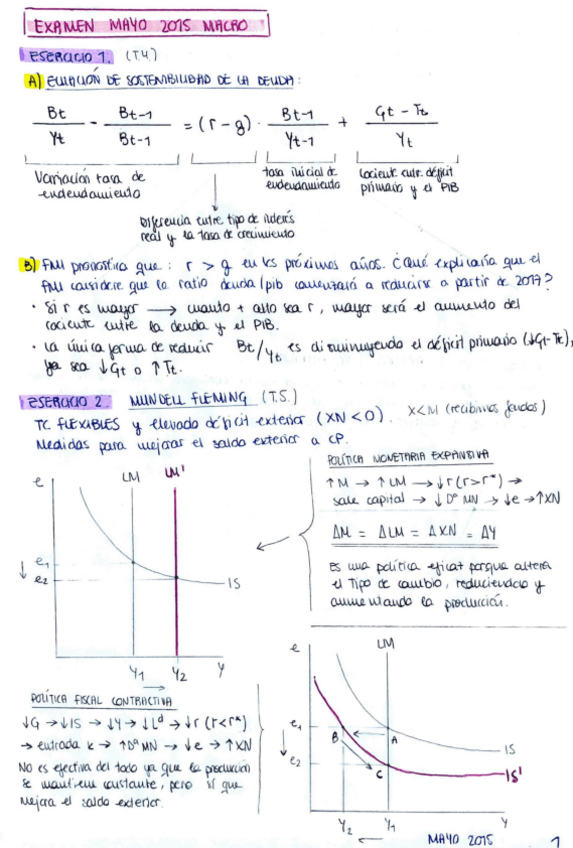 EXAMEN MAYO 2015 MACRO
EJERCICIO 1. (T.4.)
A) ECUACIÓN DE SOSTENIBILIDAD DE LA DEUDA:
Bt/Yt - Bt-1/Bt-1 = (r-g) · Bt-1/Yt-1 + Gt-Tt/Yt
Variación tasa de endeudamiento
tasa inicial de endeudamiento
Cociente entre déficit primario y el PIB
Diferencia entre tipo de interés
real y la tasa de crecimiento
B) FMI pronostica que: r > g en los próximos años. ¿Qué explicaría que el
FMI considere que la ratio deuda/pib comenzará a reducirse a partir de 2017?
· Si r es mayor → cuanto + alto sea r, mayor será el aumento del
cociente entre la deuda y el PIB.
· La única forma de reducir Bt/Yt es disminuyendo el déficit primario (↓Gt-Tt),
ya sea ↓Gt o ↑Tt.
EJERCICIO 2. MUNDELL FLEMING (T.5.)
TC FLEXIBLES y elevado déficit exterior (XN<0). X<M (recibimos fondos)
Medidas para mejorar el saldo exterior a CP.
POLÍTICA MONETARIA EXPANSIVA
↑M → ↑LM → ↓r (r>r*) →
sale capital → ↓Dª MN → ↓e → ↑XN
ΔM = ΔLM = ΔXN = ΔY
Es una política eficaz porque altera
el Tipo de cambio, reduciéndolo y
aumentando la producción.
e
LM
LM'
e1
↓
e2
IS
Y1
Y2
Y
→
POLÍTICA FISCAL CONTRACTIVA
↓G → ↓IS → ↓Y → ↓Lᵈ → ↓r (r<r*)
→ entrada k → ↑Dª MN → ↓e → ↑XN
No es efectiva del todo ya que la producción
se mantiene constante, pero sí que
mejora el saldo exterior.
e
LM
e1
↓
e2
B
A
C
IS
IS'
Y2
Y1
Y
←
MAYO 2015
1